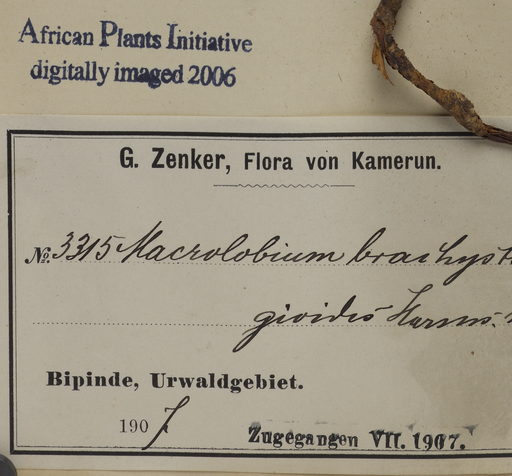 African Plants Initiative
digitally imaged 2006
G. Zenker, Flora von Kamerun.
No. 3315 Macrolobium brachyst
gioides Harms.
Bipinde, Urwaldgebiet.
1907
Zugegangen VII. 1907.